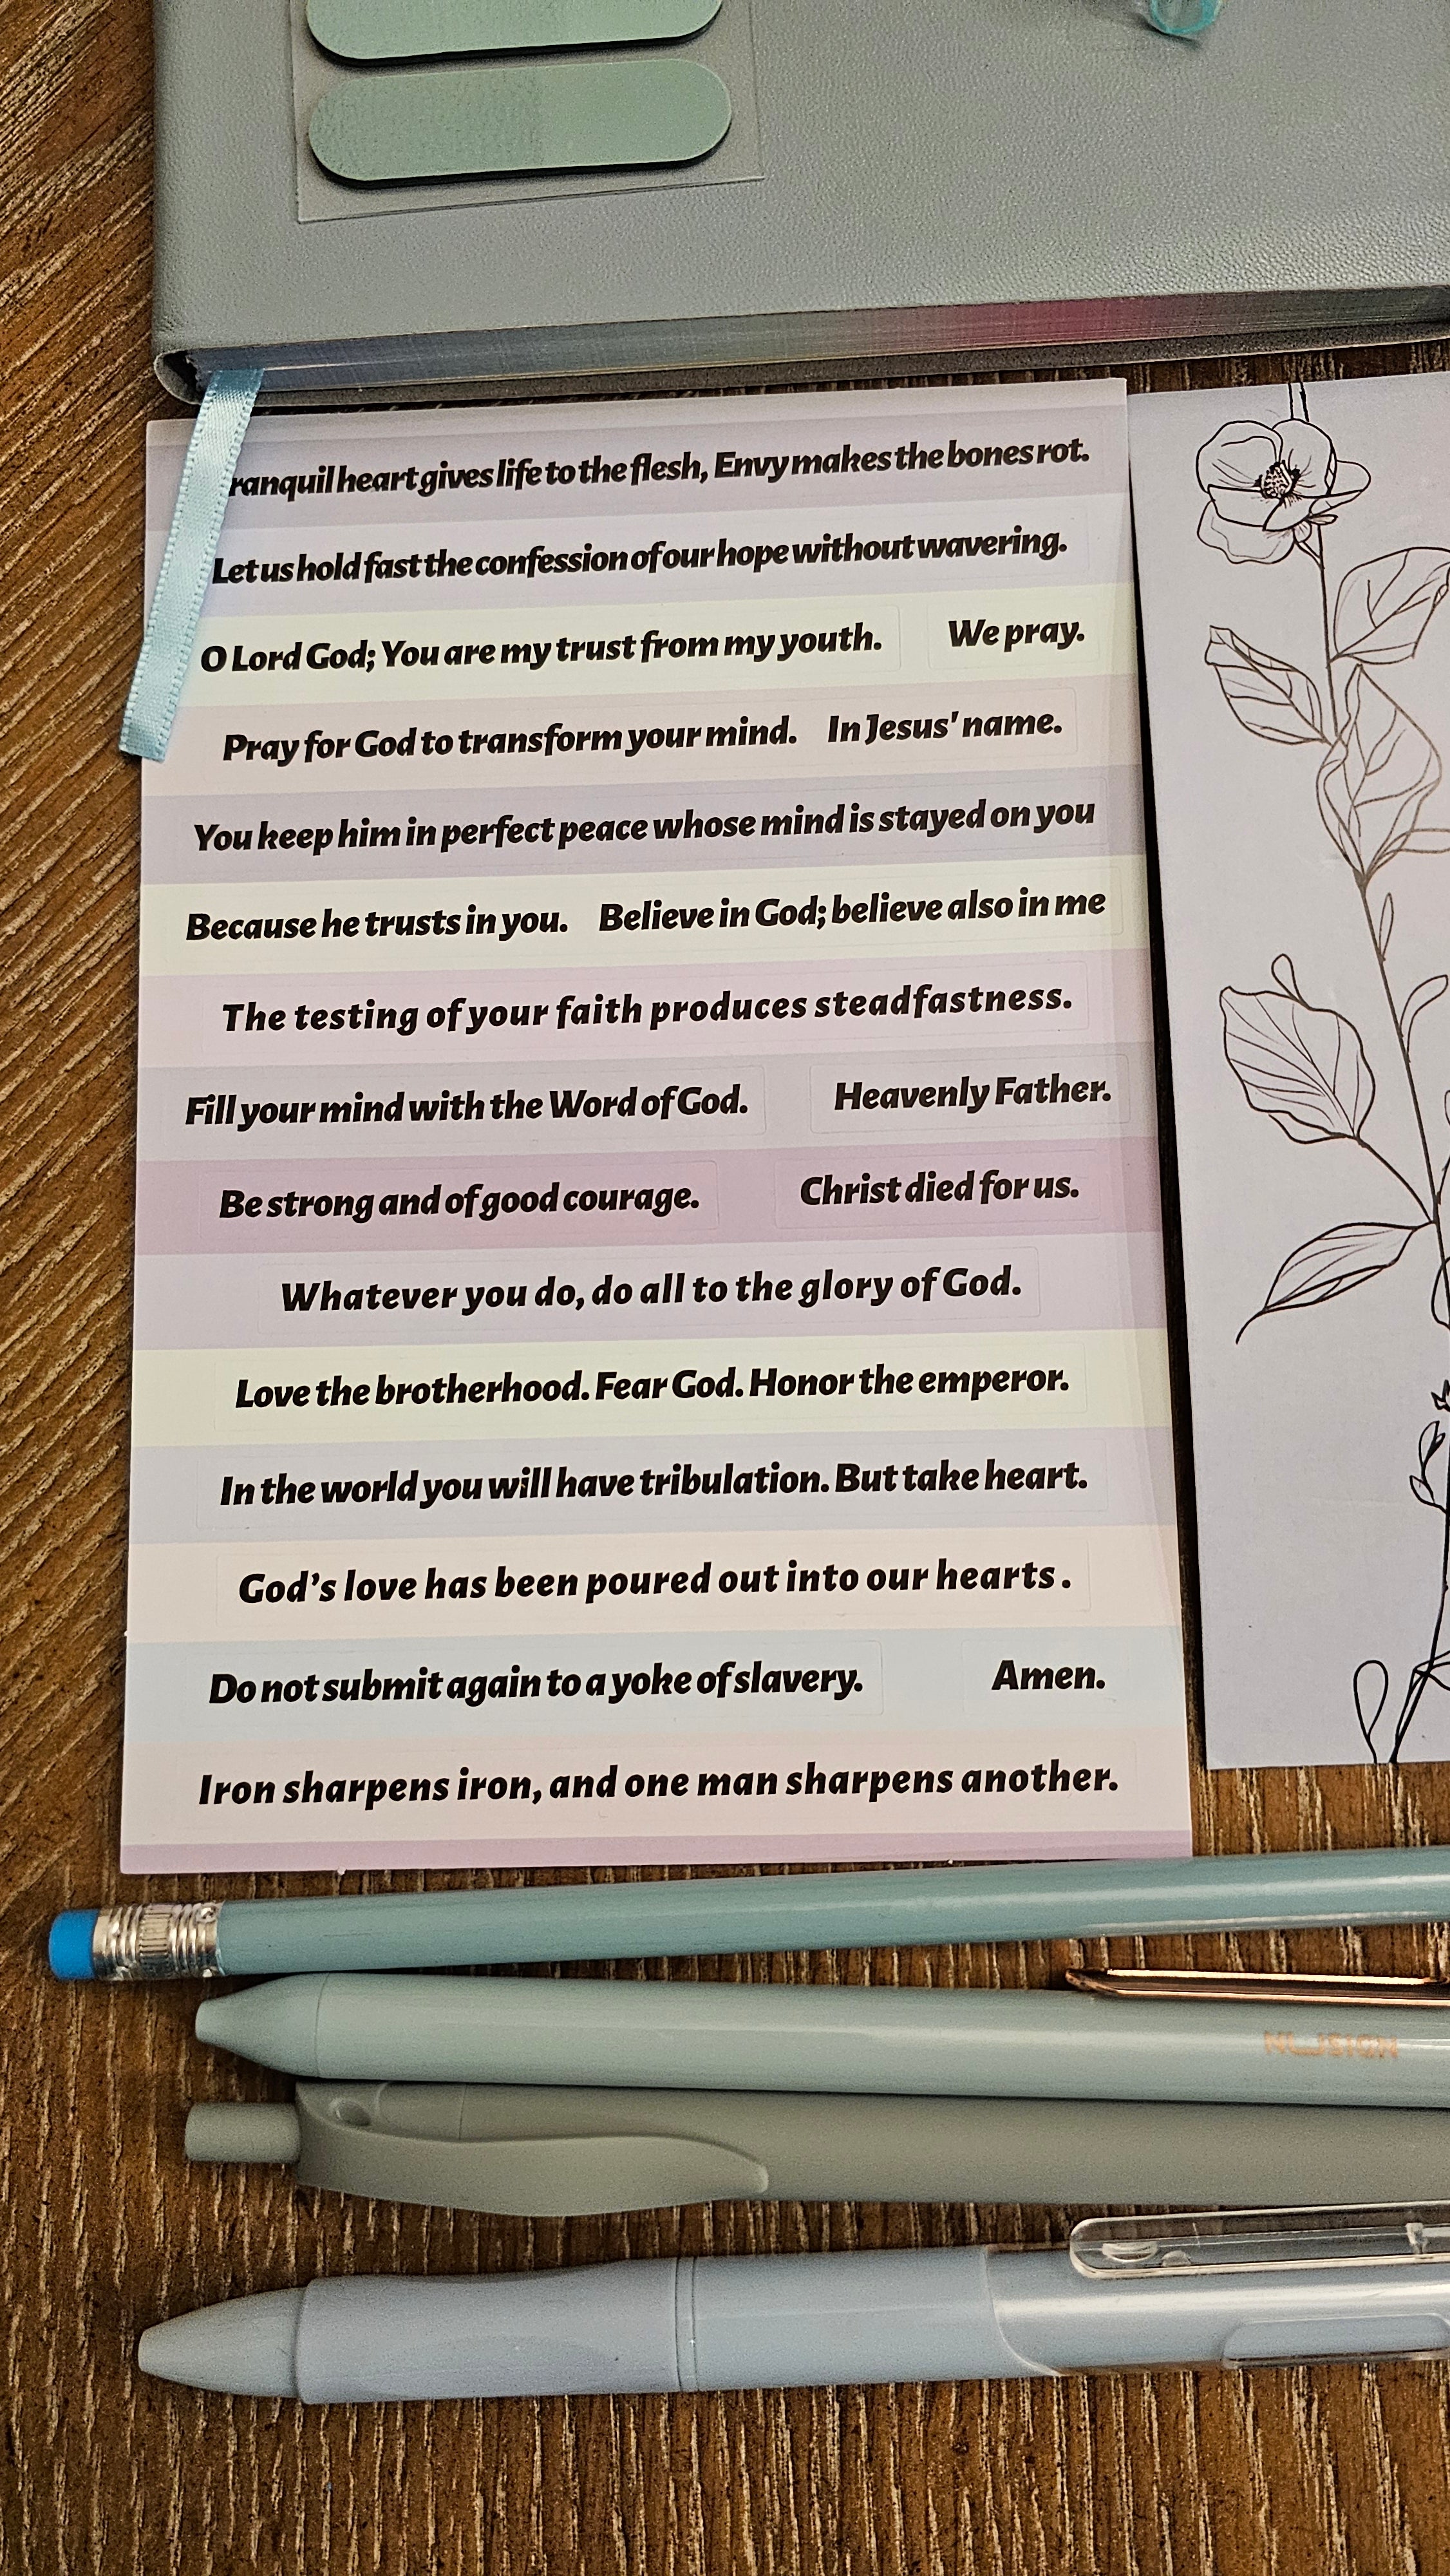 ranquil heart gives life to the flesh, Envy makes the bones rot.
Let us hold fast the confession of our hope without wavering.
O Lord God; You are my trust from my youth. We pray.
Pray for God to transform your mind. In Jesus' name.
You keep him in perfect peace whose mind is stayed on you
Because he trusts in you. Believe in God; believe also in me
The testing of your faith produces steadfastness.
Fill your mind with the Word of God. Heavenly Father.
Be strong and of good courage. Christ died for us.
Whatever you do, do all to the glory of God.
Love the brotherhood. Fear God. Honor the emperor.
In the world you will have tribulation. But take heart.
God's love has been poured out into our hearts .
Do not submit again to a yoke of slavery. Amen.
Iron sharpens iron, and one man sharpens another.
NUSIGN